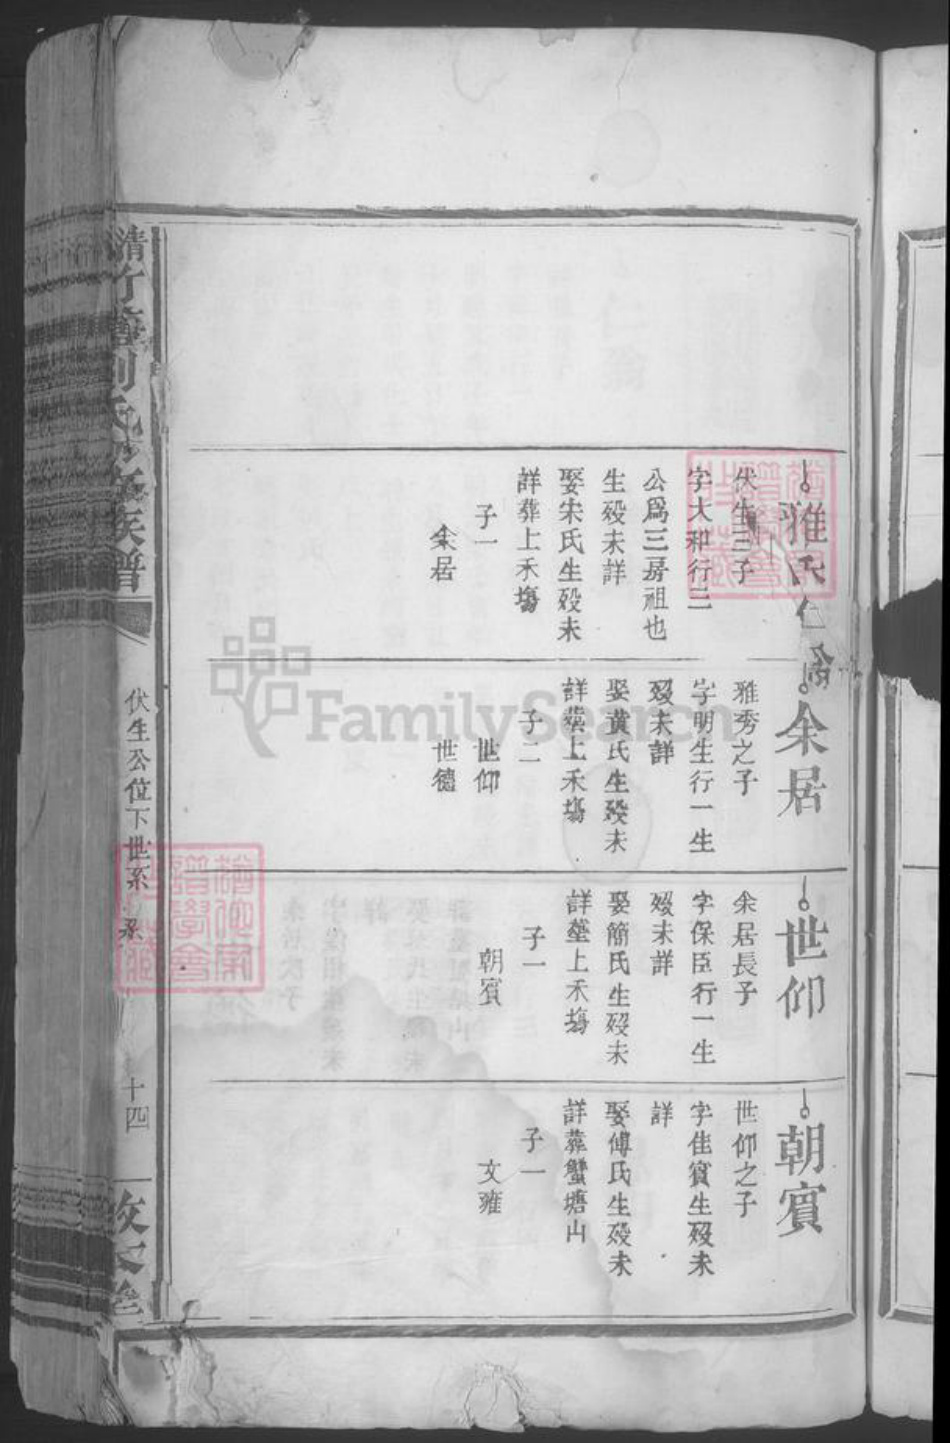 雅
伏生三子
字大和行三
公爲三房祖也
生殁未詳
娶宋氏生殁未
詳葬上禾塲
子一
余居
余居
雅秀之子
字明生行一生
殁未詳
娶黄氏生殁未
詳葬上禾塲
子二
世仰
世德
世仰
余居長子
字保臣行一生
殁未詳
娶簡氏生殁未
詳塟上禾塲
子一
朝賓
朝賓
世仰之子
字佳賓生殁未
詳
娶傅氏生殁未
詳葬蟹塘山
子一
文雍
氏 族譜
伏生公位下世系
十四
FamilySearch